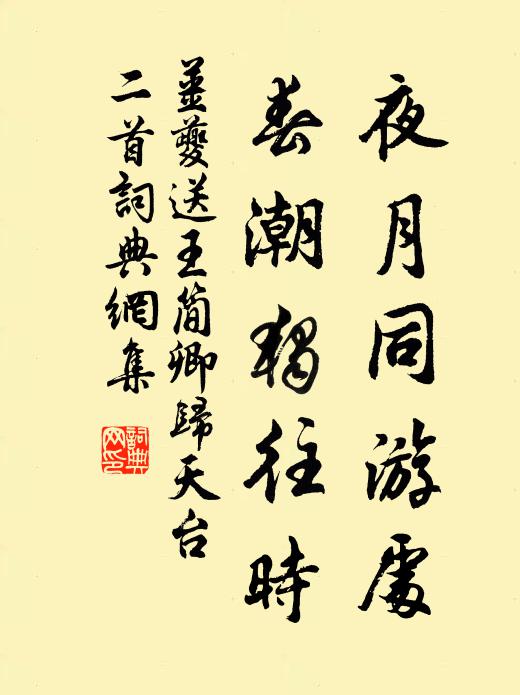 夜月同游處
春潮獨往時
姜夔送王简卿歸天台
二首詞典網集
詞典
网印